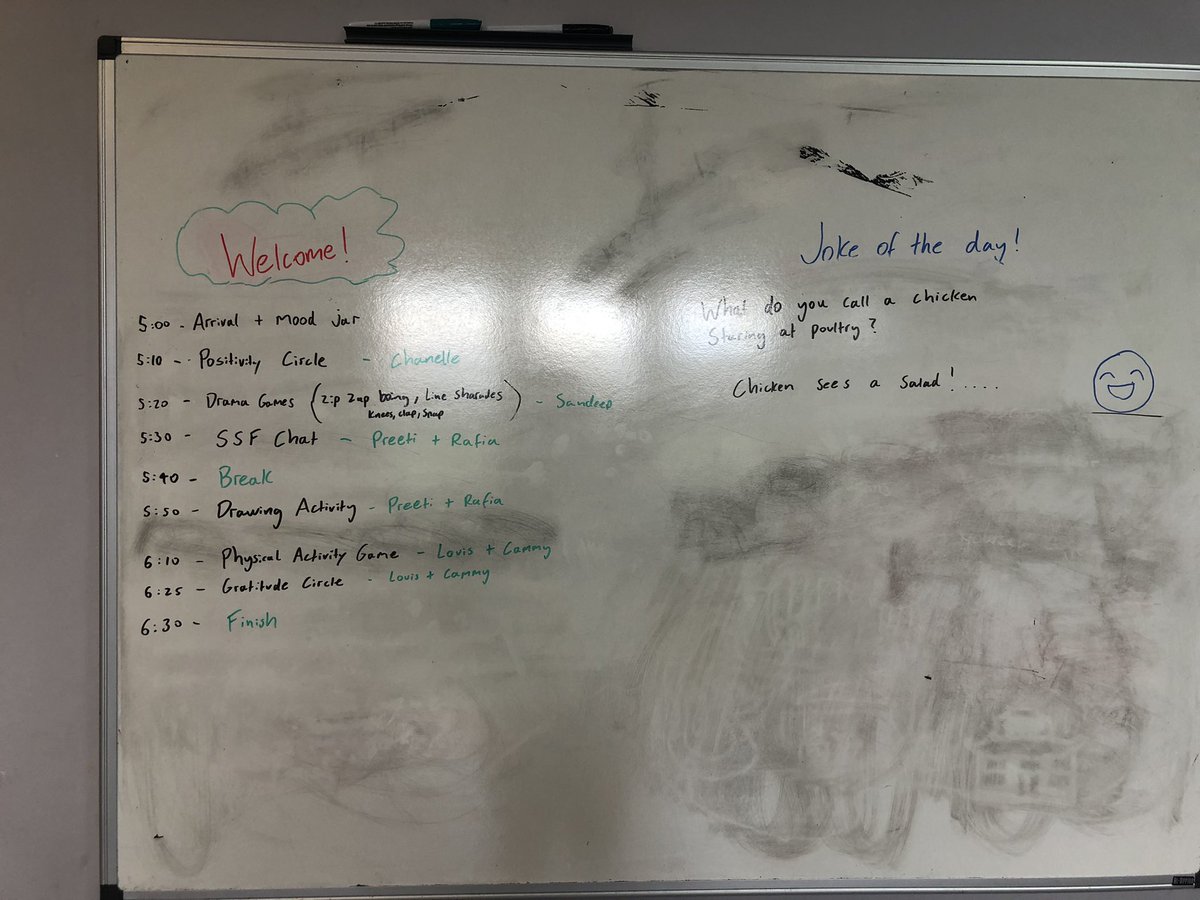 Welcome!
5:00 - Arrival + Mood jar
5:10 - Positivity Circle - Chanelle
5:20 - Drama Games (Zip Zap boing, Line Sharades - Sandeep
Knees, clap, Snap)
5:30 - SSF Chat - Preeti + Rafia
5:40 - Break
5:50 - Drawing Activity - Preeti + Rafia
6:10 - Physical Activity Game - Louis + Cammy
6:25 - Gratitude Circle - Louis + Cammy
6:30 - Finish
Joke of the day!
What do you call a chicken
Staring at poultry?
Chicken sees a Salad!....